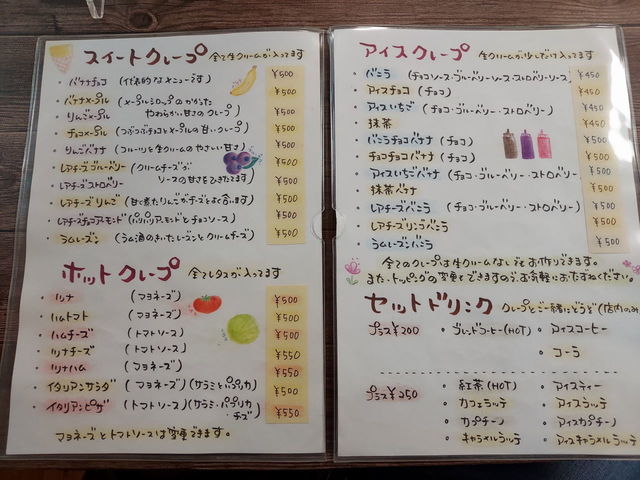 スイートクレープ 全て生クリームが入ってます
・バナナチョコ (代表的なメニューです) ¥500
・バナナメープル (メープルシロップのからまった ¥500
・りんごメープル やわらかい甘さのクレープ) ¥500
・チョコメープル (つぶつぶチョコとメープルの甘いクレープ) ¥500
・りんごバナナ (フルーツと生クリームのやさしい甘さ) ¥500
・レアチーズブルーベリー (クリームチーズが ¥500
・レアチーズストロベリー ソースの甘さをひきたてます) ¥500
・レアチーズりんご (甘く煮たりんごがチーズとよく合います) ¥500
・レアチーズチョコアーモンド (パリパリアーモンドとチョコソース) ¥500
・ラムレーズン (ラム酒のきいたレーズンとクリームチーズ) ¥500
ホットクレープ 全てレタスが入ってます
・ツナ (マヨネーズ) ¥500
・ハムトマト (マヨネーズ) ¥500
・ハムチーズ (トマトソース) ¥500
・ツナチーズ (トマトソース) ¥550
・ツナハム (マヨネーズ) ¥550
・イタリアンサラダ (マヨネーズ)(サラミとパプリカ) ¥500
・イタリアンピザ (トマトソース)(サラミ・パプリカ・チーズ) ¥550
マヨネーズとトマトソースは変更できます。
アイスクレープ 生クリームが少しだけ入ってます
・バニラ (チョコソース・ブルーベリーソース・ストロベリーソース) ¥450
・アイスチョコ (チョコ) ¥450
・アイスいちご (チョコ・ブルーベリー・ストロベリー) ¥450
・抹茶 ¥450
・バニラチョコバナナ (チョコ) ¥500
・チョコチョコバナナ (チョコ) ¥500
・アイスいちごバナナ (チョコ・ブルーベリー・ストロベリー) ¥500
・抹茶バナナ ¥500
・レアチーズバニラ (チョコ・ブルーベリー・ストロベリー) ¥500
・レアチーズリンゴバニラ ¥500
・ラムレーズンバニラ ¥500
全てのクレープは生クリームなしでもお作りできます。
また、トッピングの変更もできますので、お気軽におたずねください。
セットドリンク クレープとご一緒にどうぞ(店内のみ)
プラス¥200 ・ブレンドコーヒー(HOT) ・アイスコーヒー
・コーラ
プラス¥250 ・紅茶(HOT) ・アイスティー
・カフェラッテ ・アイスラッテ
・カプチーノ ・アイスカプチーノ
・キャラメルラッテ ・アイスキャラメルラッテ